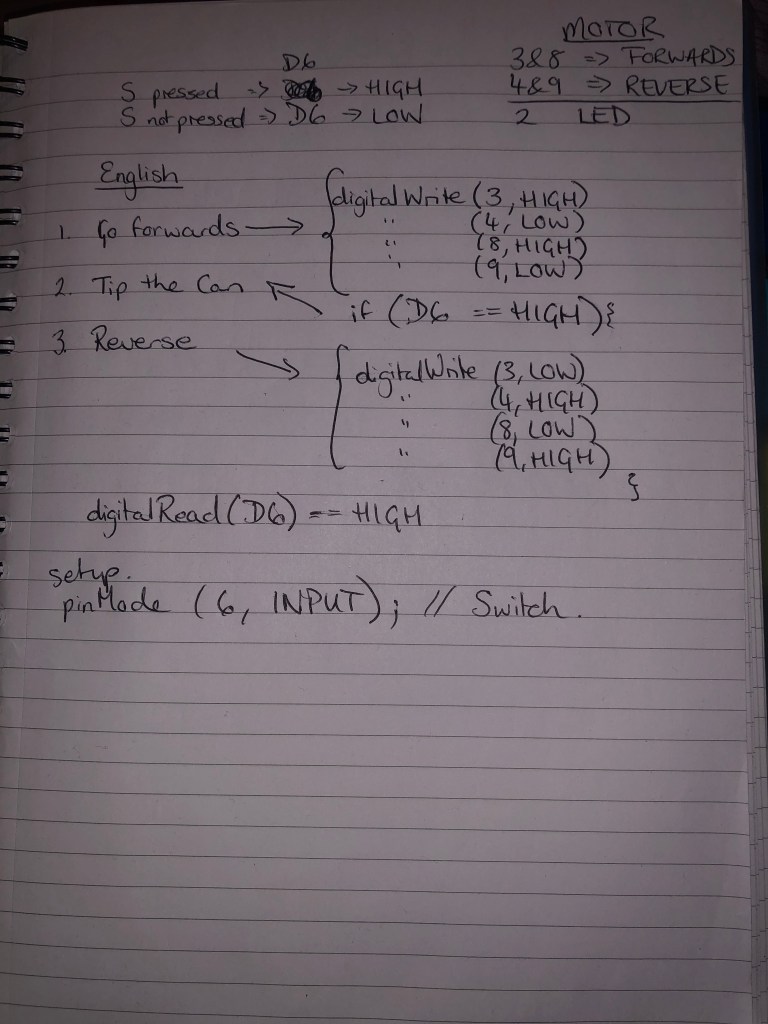 MOTOR
3&8 => FORWARDS
4&9 => REVERSE
2 LED
D6
S pressed => → HIGH
S not pressed => D6 → LOW
English
1. Go forwards → { digitalWrite (3, HIGH)
" (4, LOW)
" (8, HIGH)
" (9, LOW)
2. Tip the Can
if (D6 == HIGH) {
3. Reverse → { digitalWrite (3, LOW)
" (4, HIGH)
" (8, LOW)
" (9, HIGH)
}
digitalRead (D6) == HIGH
setup.
pinMode (6, INPUT); // Switch.